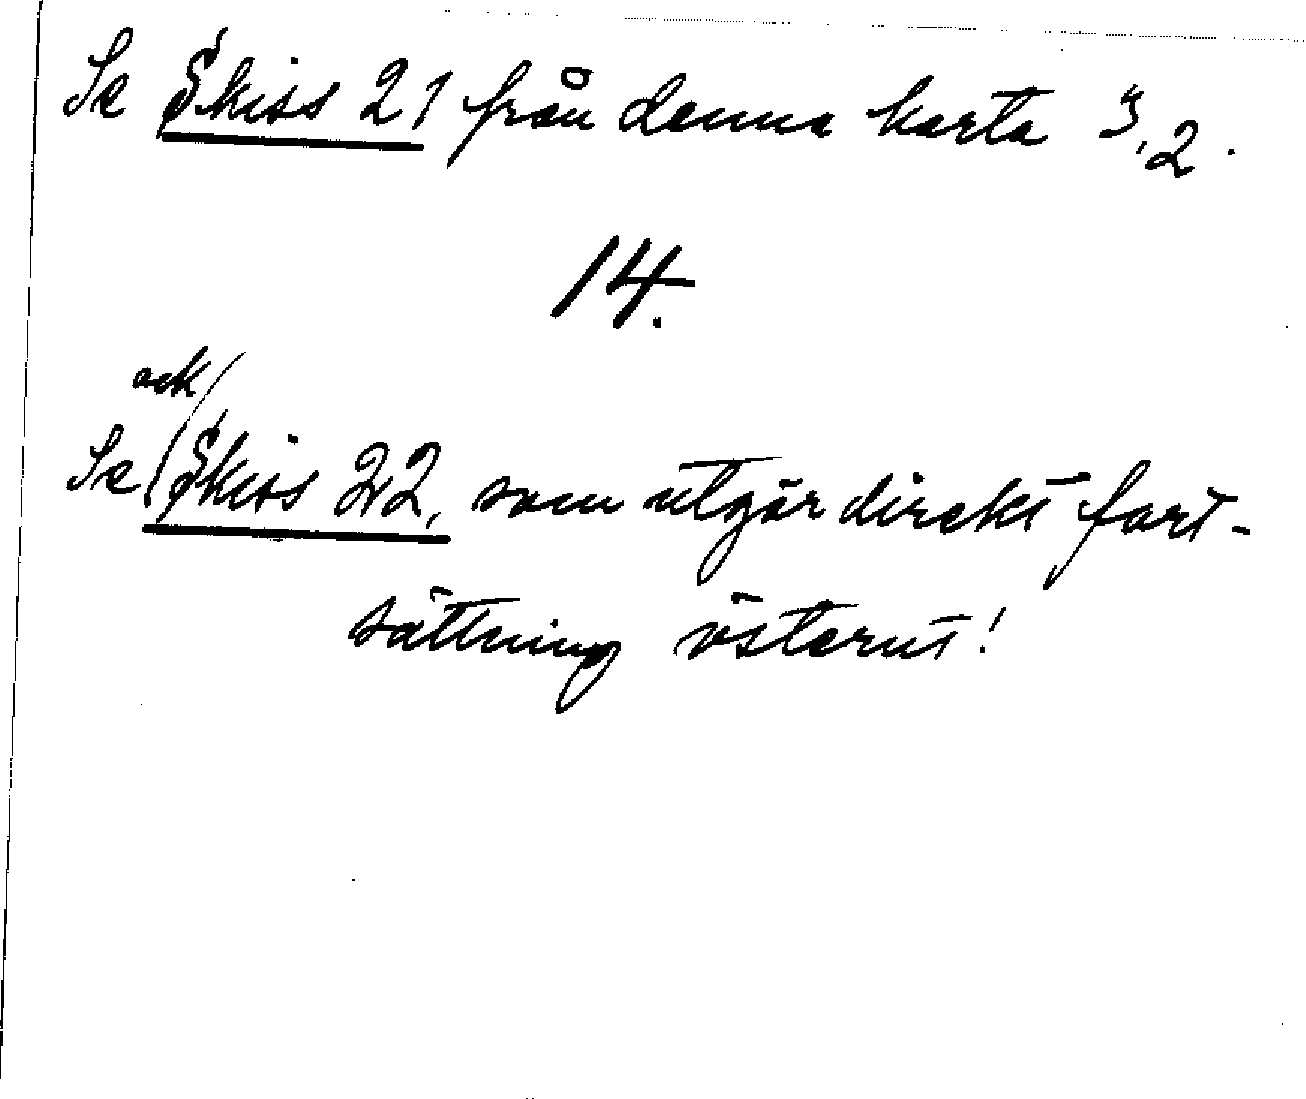 Se Skiss 21 från denna karta 3,2.
14.
ock
Se Skiss 22, som utgör direkt fort-
sättning österut!